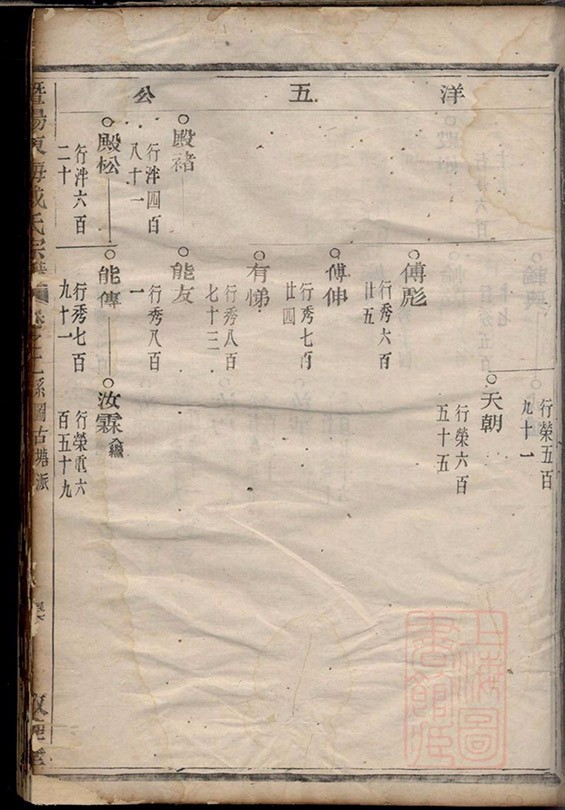 洋五公
行榮五百
九十一
天朝
行榮六百
五十五
傅彪
行秀六百
廿五
傅伸
行秀七百
廿四
有悌
行秀八百
七十三
殿禇
行泮四百
八十一
能友
行秀八百
一
殿松
行泮六百
二十
能傳
行秀七百
九十一
汝霖
行榮六
百五十九
暨陽 氏宗譜 系圖古塘派
上海圖書館